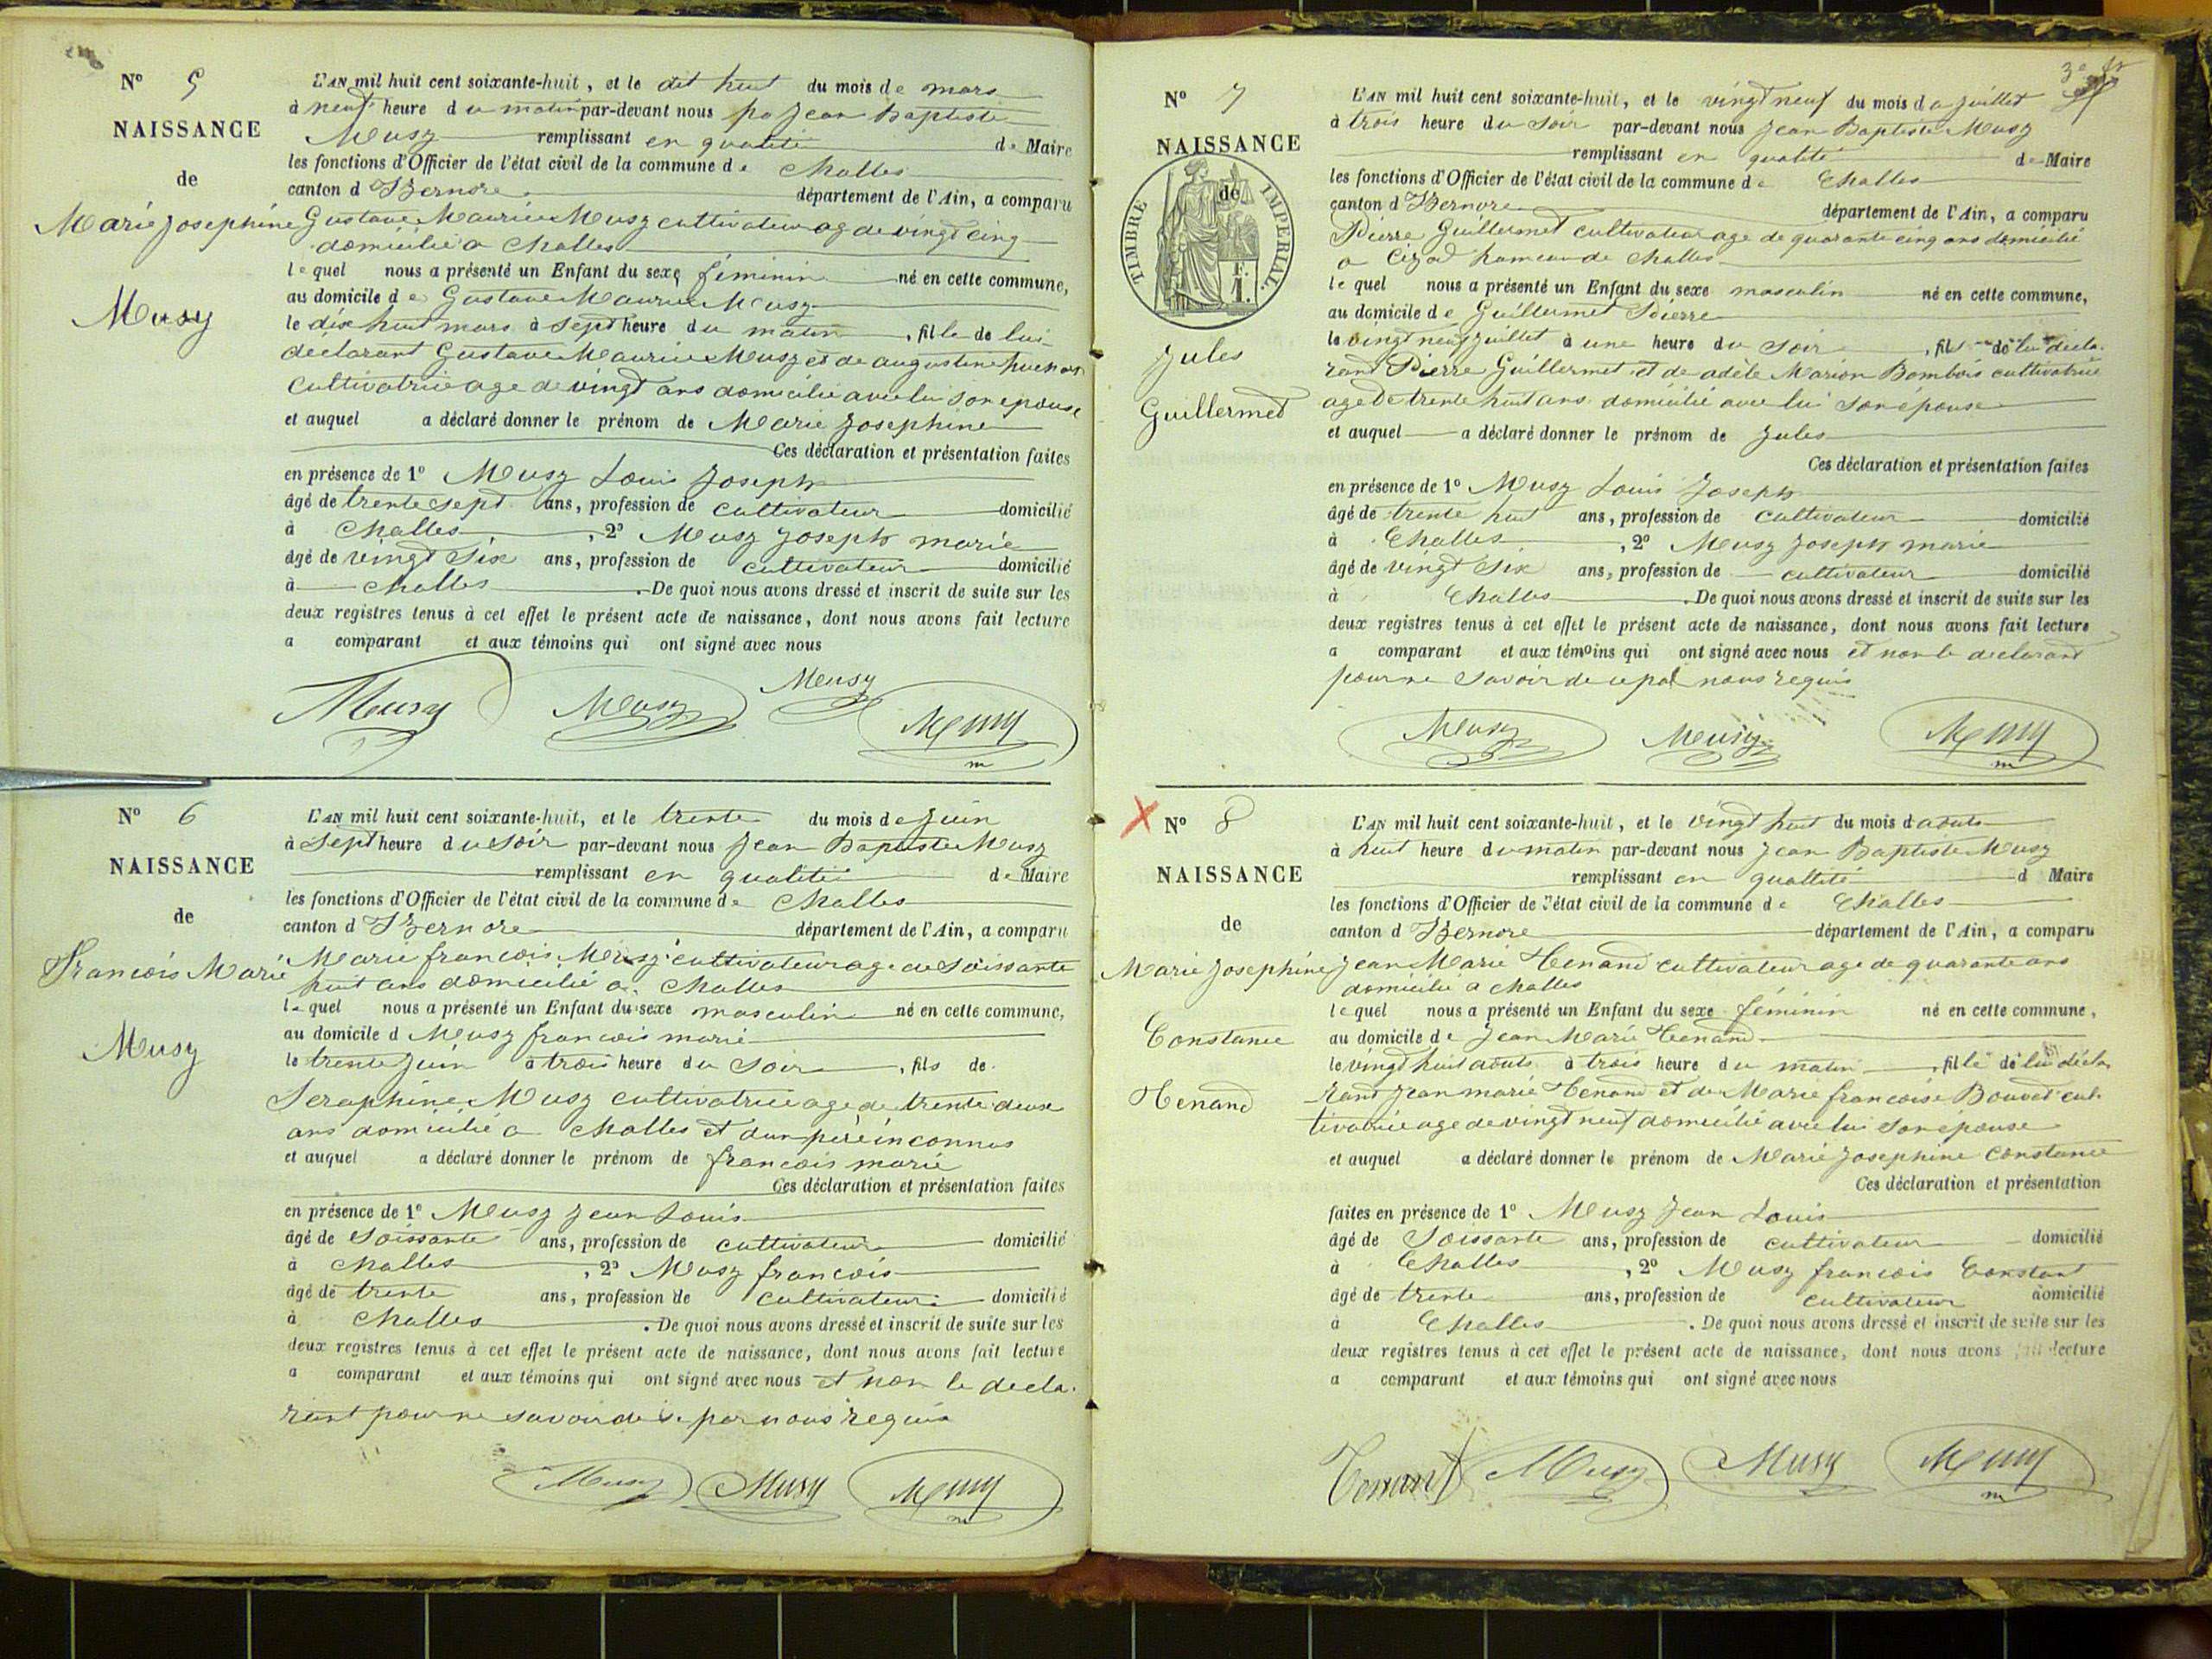 N° 5
NAISSANCE
de
Marie Josephine
Musy
L'AN mil huit cent soixante-huit, et le dit huit du mois de mars
à neuf heure du matin par-devant nous Jean Baptiste
Musy remplissant en qualité de Maire
les fonctions d'Officier de l'état civil de la commune de Challes
canton d'Izernore département de l'Ain, a comparu
Gustave Maurice Musy cultivateur age de vingt cinq
domicilié a Challes
lequel nous a présenté un Enfant du sexe féminin né en cette commune,
au domicile de Gustave Maurice Musy
le dix huit mars à sept heure du matin, fille de lui
declarant Gustave Maurice Musy et de augustine
cultivatrice age de vingt ans domicilié avec lui son epouse
et auquel a déclaré donner le prénom de Marie Josephine
Ces déclaration et présentation faites
en présence de 1° Musy Louis Joseph
âgé de trente sept ans, profession de cultivateur domicilié
à Challes, 2° Musy Joseph marie
âgé de vingt six ans, profession de cultivateur domicilié
à Challes. De quoi nous avons dressé et inscrit de suite sur les
deux registres tenus à cet effet le présent acte de naissance, dont nous avons fait lecture
a comparant et aux témoins qui ont signé avec nous
Musy Musy Musy Musy m
N° 6
NAISSANCE
de
François Marie
Musy
L'AN mil huit cent soixante-huit, et le trente du mois de Juin
à Sept heure du Soir par-devant nous Jean Baptiste Musy
remplissant en qualité de Maire
les fonctions d'Officier de l'état civil de la commune de Challes
canton d'Izernore département de l'Ain, a comparu
Marie françois Musy cultivateur age de soissante
huit ans domicilié a Challes
lequel nous a présenté un Enfant du sexe masculin né en cette commune,
au domicile d Musy françois marie
le trente Juin à trois heure du Soir, fils de
Seraphine Musy cultivatrice age de trente deux
ans domicilié a Challes et dun père inconnus
et auquel a déclaré donner le prénom de françois marie
Ces déclaration et présentation faites
en présence de 1° Musy Jean Louis
âgé de Soissante ans, profession de cultivateur domicilié
à Challes, 2° Musy françois
âgé de trente ans, profession de cultivateur domicilié
à Challes. De quoi nous avons dressé et inscrit de suite sur les
deux registres tenus à cet effet le présent acte de naissance, dont nous avons fait lecture
a comparant et aux témoins qui ont signé avec nous et non le decla.
rant pour ne savoir de ce par nous requis
Musy Musy Musy m
N° 7
NAISSANCE
de
TIMBRE IMPERIAL.
Jules
Guillermet
L'AN mil huit cent soixante-huit, et le vingt neuf du mois de Juillet
à trois heure du Soir par-devant nous Jean Baptiste Musy
remplissant en qualité de Maire
les fonctions d'Officier de l'état civil de la commune de Challes
canton d'Izernore département de l'Ain, a comparu
Pierre Guillermet cultivateur age de quarante cinq ans domicilié
a hameau de Challes
lequel nous a présenté un Enfant du sexe masculin né en cette commune,
au domicile de Guillermet Pierre
le vingt neuf Juillet à une heure du Soir, fils de lui décla.
rant Pierre Guillermet et de adèle Marion Bombois cultivatrice
age de trente huit ans domicilié avec lui son epouse
et auquel a déclaré donner le prénom de Jules
Ces déclaration et présentation faites
en présence de 1° Musy Louis Joseph
âgé de trente huit ans, profession de cultivateur domicilié
à Challes, 2° Musy Joseph marie
âgé de vingt six ans, profession de cultivateur domicilié
à Challes. De quoi nous avons dressé et inscrit de suite sur les
deux registres tenus à cet effet le présent acte de naissance, dont nous avons fait lecture
a comparant et aux témoins qui ont signé avec nous et non le declarant
pour ne savoir de ce par nous requis
Musy Musy Musy m
N° 8
NAISSANCE
de
Marie Josephine
Constance
Tenand
L'AN mil huit cent soixante-huit, et le vingt huit du mois d aouts
à huit heure du matin par-devant nous Jean Baptiste Musy
remplissant en quallité d Maire
les fonctions d'Officier de l'état civil de la commune de Challes
canton d'Izernore département de l'Ain, a comparu
Jean Marie Tenand cultivateur age de quarante ans
domicilié a Challes
lequel nous a présenté un Enfant du sexe féminin né en cette commune,
au domicile de Jean Marie Tenand
le vingt huit aouts à trois heure du matin, fille de lui décla
rant Jean marie Tenand et de Marie françoise Bouvet cul.
tivatrice age de vingt neuf domicilié avec lui son épouse
et auquel a déclaré donner le prénom de Marie Josephine Constance
Ces déclaration et présentation
faites en présence de 1° Musy Jean Louis
âgé de Soissante ans, profession de cultivateur domicilié
à Challes, 2° Musy françois Constant
âgé de trente ans, profession de cultivateur domicilié
à Challes. De quoi nous avons dressé et inscrit de suite sur les
deux registres tenus à cet effet le présent acte de naissance, dont nous avons fait lecture
a comparant et aux témoins qui ont signé avec nous
Tenand Musy Musy Musy m